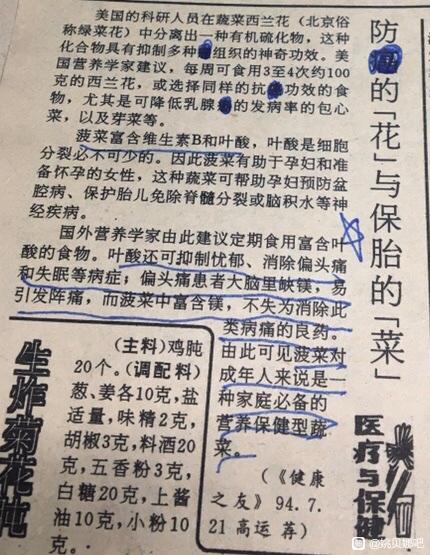 防的「花」与保胎的「菜」
美国的科研人员在蔬菜西兰花（北京俗
称绿菜花）中分离出一种有机硫化物，这
种化合物具有抑制多种组织的神奇功效。美
国营养学家建议，每周可食用3至4次约100
克的西兰花，或选择同样的抗功效的食
物，尤其是可降低乳腺的发病率的包心
菜，以及芽菜等。
菠菜富含维生素B和叶酸，叶酸是细胞
分裂必不可少的。因此菠菜有助于孕妇和准
备怀孕的女性，这种蔬菜可帮助孕妇预防盆
腔病、保护胎儿免除脊髓分裂或脑积水等神
经疾病。
国外营养学家由此建议定期食用富含叶
酸的食物。叶酸还可抑制忧郁、消除偏头痛
和失眠等病症；偏头痛患者大脑里缺镁，易
引发阵痛，而菠菜中富含镁，不失为消除此
类病痛的良药。
由此可见菠菜对
成年人来说是一
种家庭必备的
营养保健型蔬
菜。
（《健康
之友》94.7.
21高运荐）
医疗与保健
生炸菊花肫
（主料）鸡肫
20个。（调配料）
葱、姜各10克，盐
适量，味精2克，
胡椒3克，料酒20
克，五香粉3克，
白糖20克，上酱
油10克，小粉10
克。
@姚贝娜吧